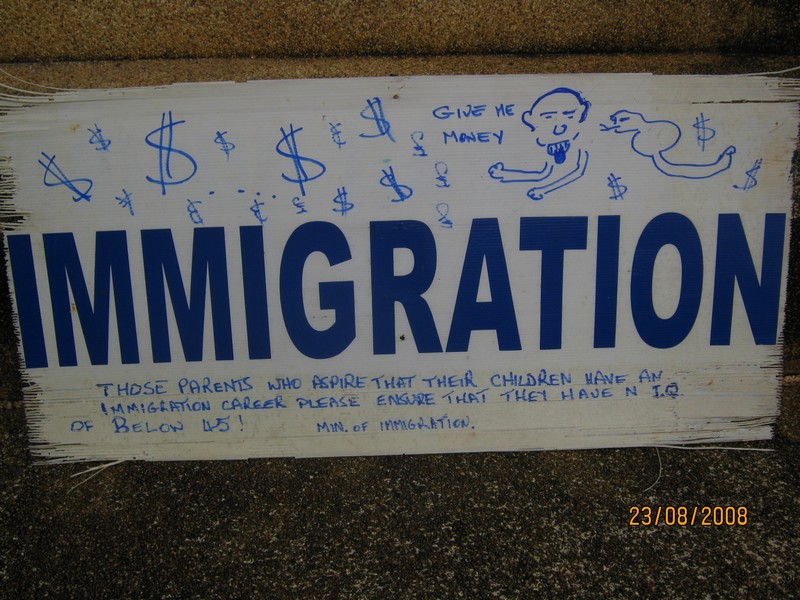 GIVE ME
MONEY
IMMIGRATION
THOSE PARENTS WHO ASPIRE THAT THEIR CHILDREN HAVE AN
IMMIGRATION CAREER PLEASE ENSURE THAT THEY HAVE N I.Q.
OF BELOW 45!
MIN. OF IMMIGRATION.
23/08/2008